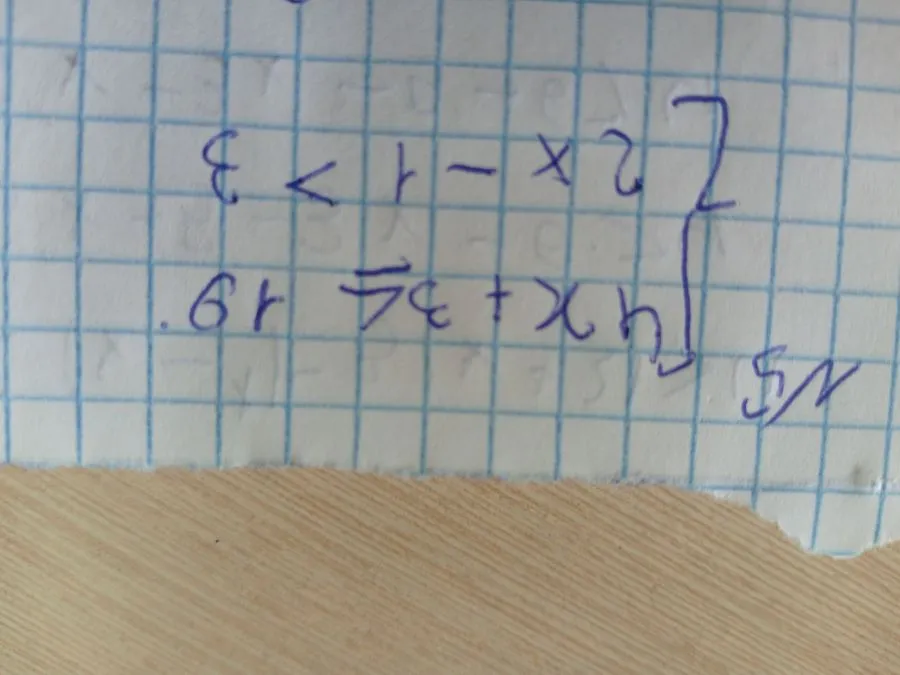 N5
{ 4x + 3 ≤ 19.
2x - 1 > 3